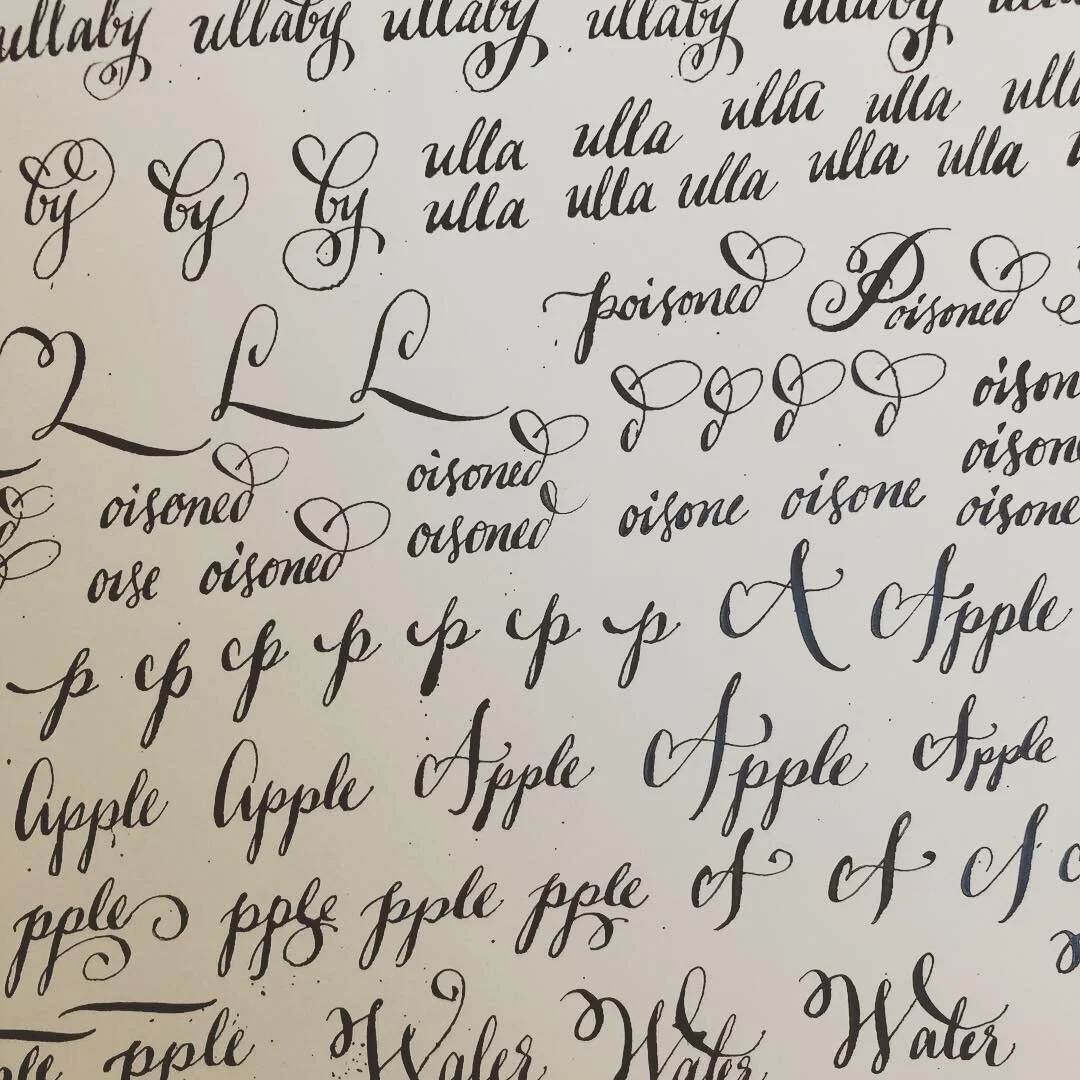 ullaby ullaby ullaby ullaby ullaby
by by by ulla ulla ulla ulla ulla
ulla ulla ulla ulla ulla
poisoned Poisoned
L L L d d d d oison
oisoned oisoned oisone
oisoned oisone oisone oisone
oise oisoned
p p p p p p p A Apple
Apple Apple Apple Apple Apple
pple pple pple pple A A A
ple pple Water Water Water